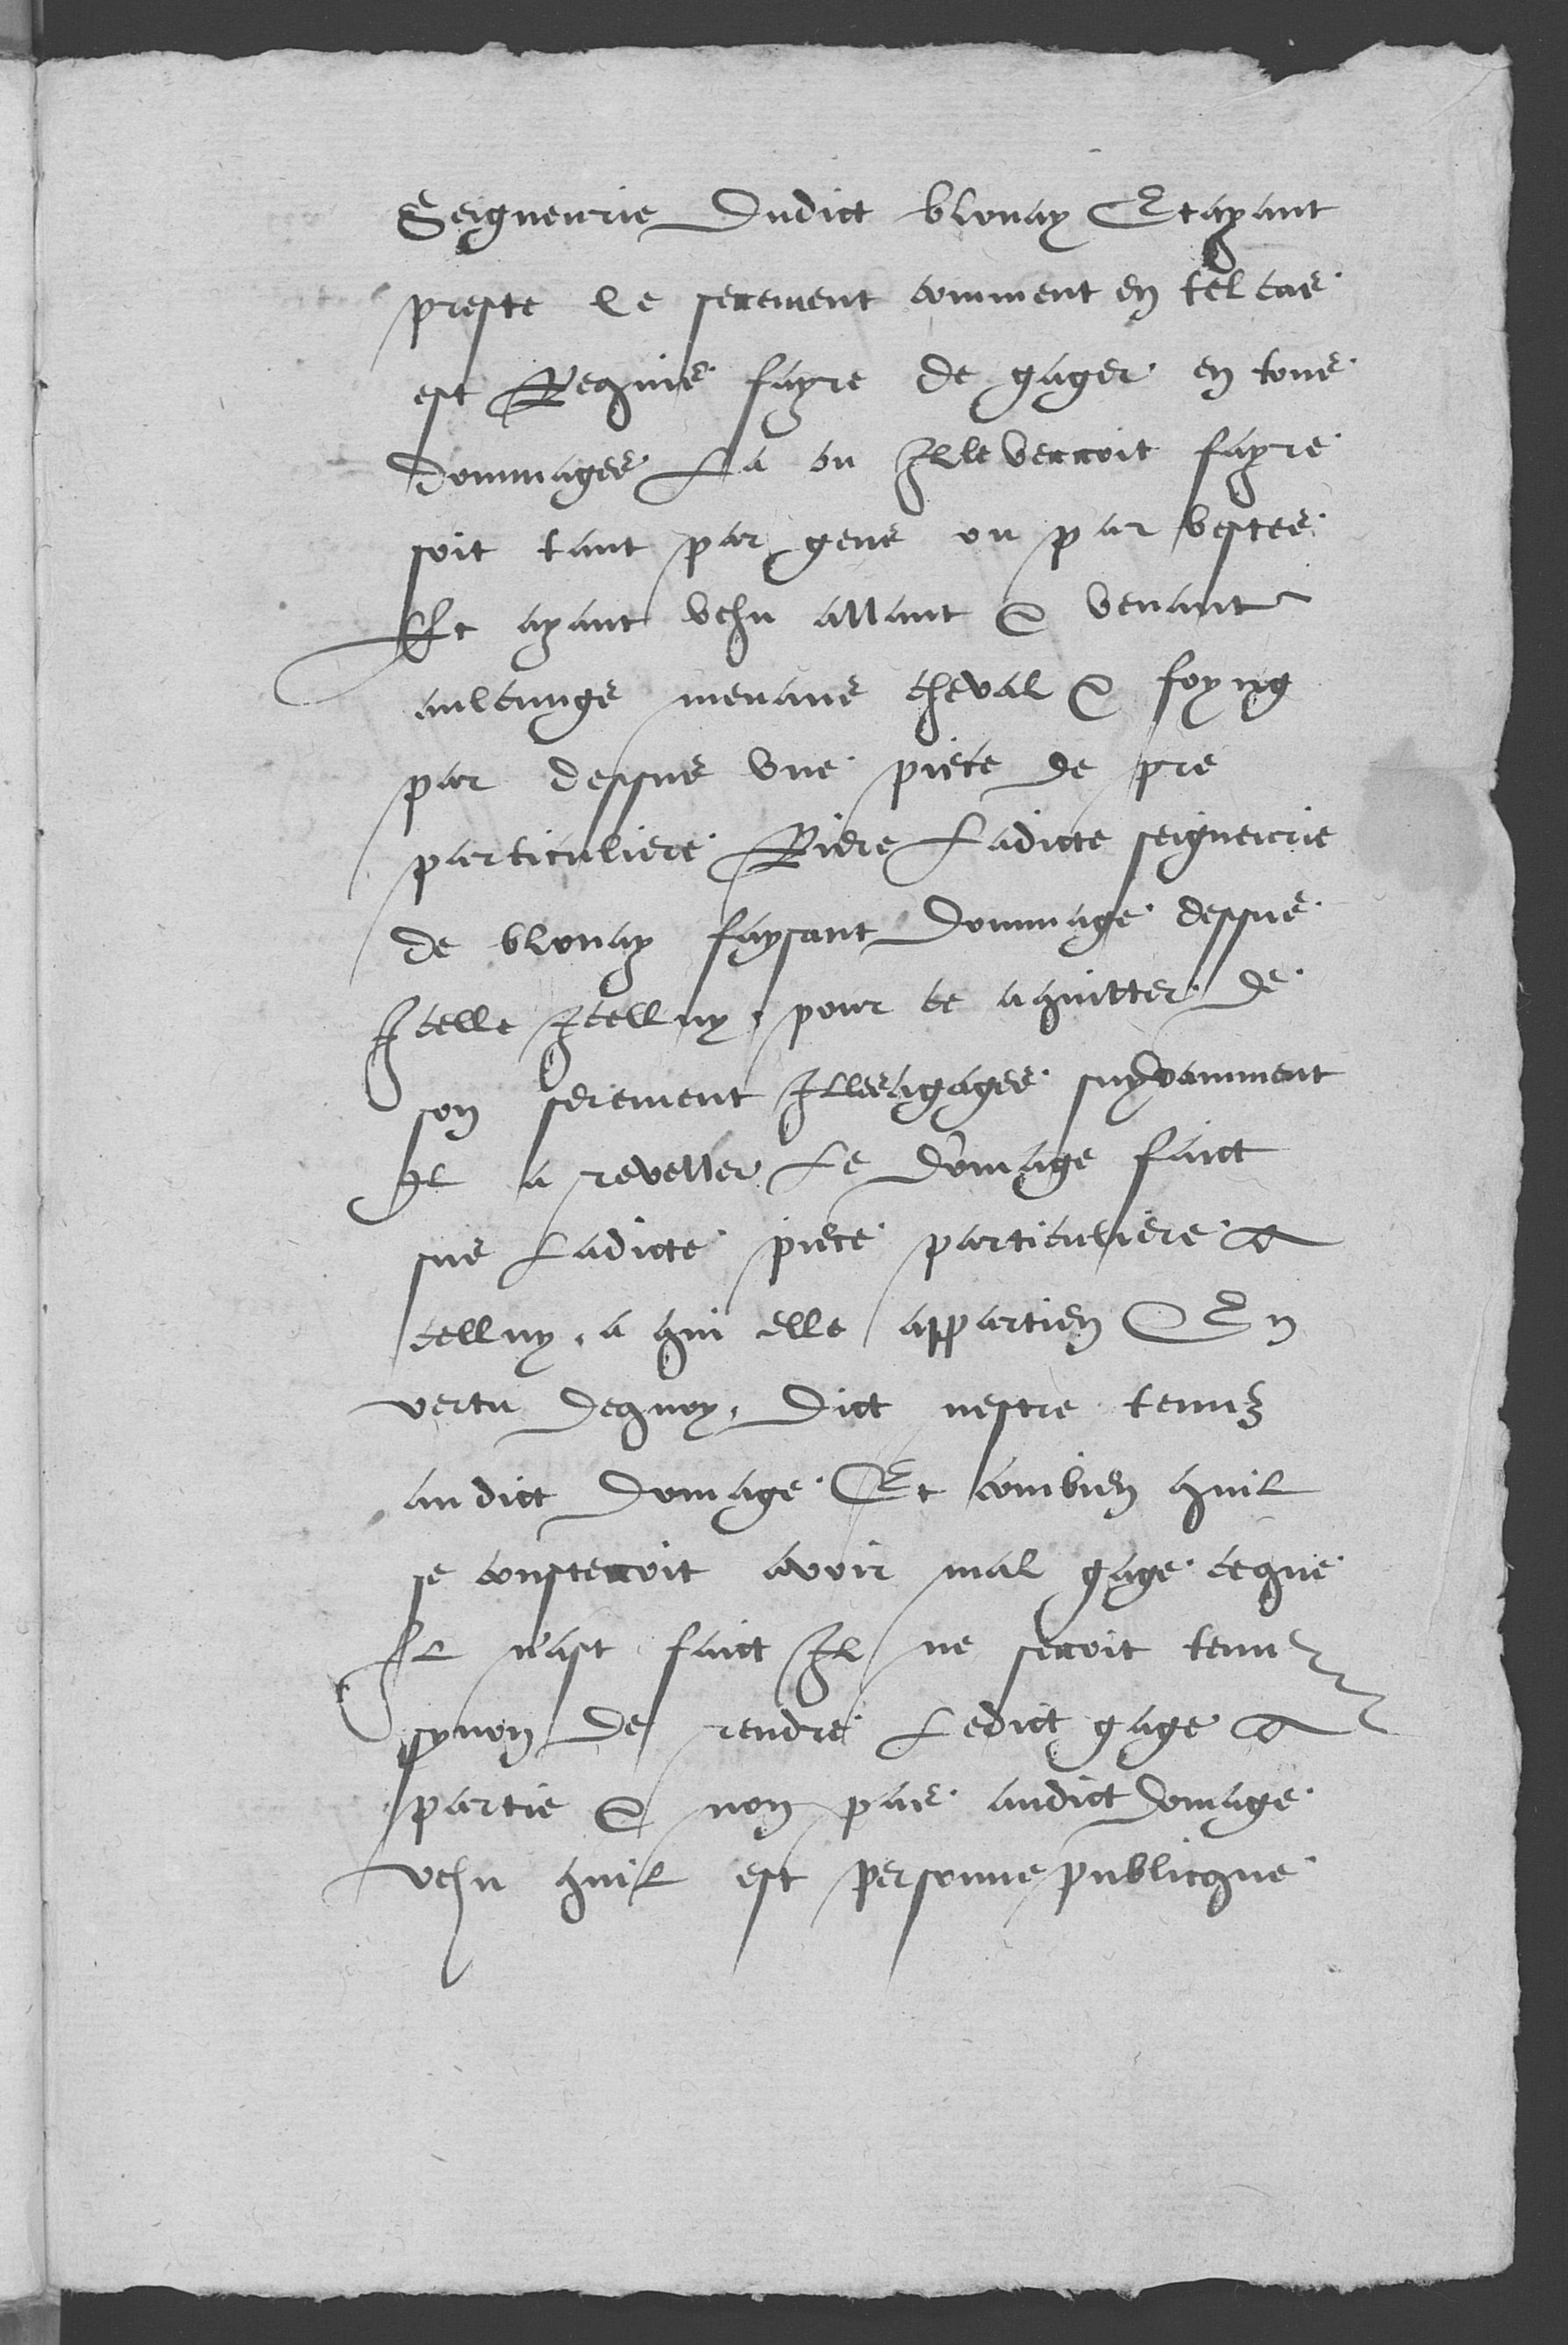 Seigneurie dudict blonay Et ayant
preste le serement comment en tel cas
est Requis fayre de gager en tous
dommages La ou Il le verroit fayre
soit tant par gens ou par bestes
Et ayant vehu allant & venant
aulcungs menans cheval & foyng
par dessus une piece de pre
particuliere Riere Ladicte seigneurie
de blonay faysant dommage dessus
Icelle Icelluy pour ce aquitter de
son serement Il les a gages suyvamment
Il a reveller Le domage faict
sus Ladicte piece particuliere a
celluy a qui elle appartien En
vertu dequoy dict nestre tenuz
audict domage Et combien quil
se consteroit avoir mal gage ce que
Il n'ast faict Il ne seroit tenuz
synon de rendre Ledict gage a
partie & non pas audict domage
vehu quil est personne publicque